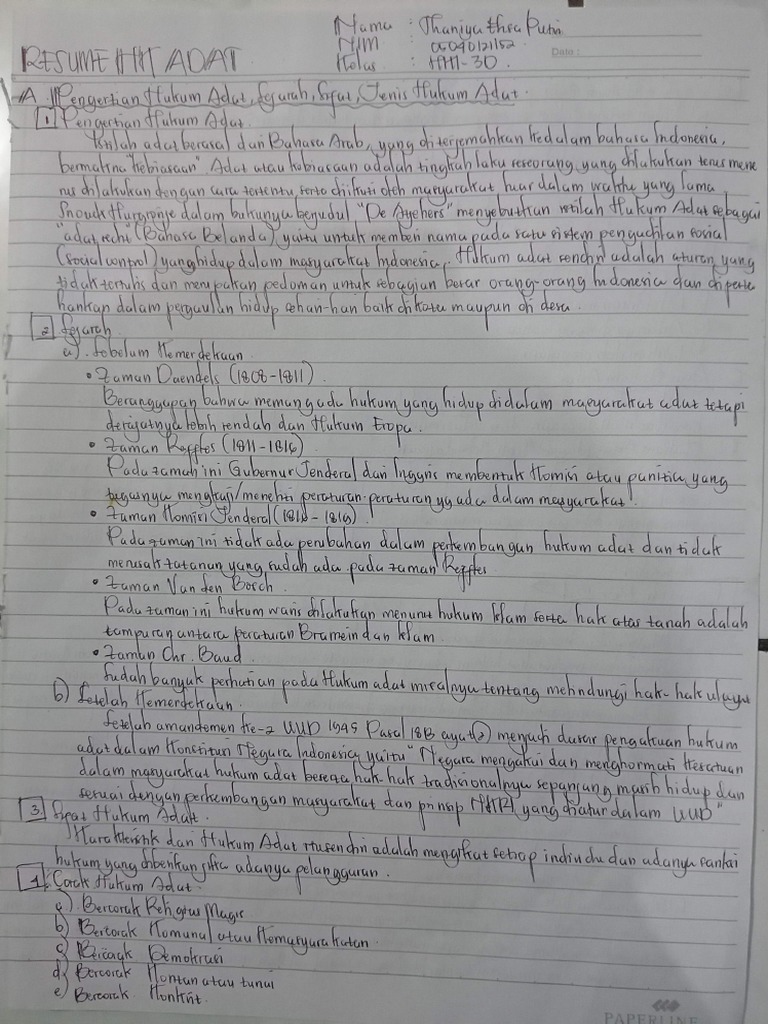 Nama : Thaniya thea Putri
NIM : 05040121152
Kelas : HHI-3D.
Date:
RESUME HHT ADAT
A. Pengertian Hukum Adat, Sejarah, Sifat, Jenis Hukum Adat.
1 Pengertian Hukum Adat.
Istilah adat berasal dari Bahasa Arab, yang diterjemahkan kedalam bahasa Indonesia,
bermakna "kebiasaan" Adat atau kebiasaan adalah tingkah laku seseorang yang dilakukan terus mene
rus dilakukan dengan cara tertentu serta diikuti oleh masyarakat luar dalam waktu yang lama
Snouck Hurgronje dalam bukunya berjudul "De Atjehers" menyebutkan istilah Hukum Adat sebagai
"adat recht (Bahasa Belanda) yaitu untuk memberi nama pada satu sistem pengendalian sosial
(social control) yang hidup dalam masyarakat Indonesia. Hukum adat sendiri adalah aturan yang
tidak tertulis dan merupakan pedoman untuk sebagian besar orang-orang Indonesia dan diperta
hankan dalam pergaulan hidup sehari-hari baik di kota maupun di desa.
2 Sejarah
a). Sebelum Kemerdekaan
• Zaman Daendels (1808-1811)
Beranggapan bahwa memang ada hukum yang hidup didalam masyarakat adat tetapi
derajatnya lebih rendah dari Hukum Eropa.
• Zaman Raffles (1811-1816)
Pada zaman ini Gubernur Jenderal dari Inggris membentuk Komisi atau panitia yang
tugasnya mengkaji/meneliti peraturan-peraturan yg ada dalam masyarakat.
• Zaman Komisi Jenderal (1816-1819)
Pada zaman ini tidak ada perubahan dalam perkembangan hukum adat dan tidak
merusak tatanan yang sudah ada pada zaman Raffles
• Zaman Van den Bosch.
Pada zaman ini hukum waris dilakukan menurut hukum Islam serta hak atas tanah adalah
campuran antara peraturan Bramein dan Islam
• Zaman Chr. Baud
Sudah banyak perhatian pada Hukum adat misalnya tentang melindungi hak-hak ulayat
b) Setelah Kemerdekaan.
Setelah amandemen ke-2 UUD 1945 Pasal 18B ayat (2) menjadi dasar pengakuan hukum
adat dalam Konstitusi Negara Indonesia yaitu "Negara mengakui dan menghormati Kesatuan
dalam masyarakat hukum adat beserta hak-hak tradisionalnya sepanjang masih hidup dan
sesuai dengan perkembangan masyarakat dan prinsip yang diatur dalam UUD"
3 Sifat Hukum Adat.
Karakteristik dari Hukum Adat itu sendiri adalah mengikat setiap individu dan adanya sanksi
hukum yang diberikan jika adanya pelanggaran.
4. Corak Hukum Adat.
a) Bercorak Religius Magis
b) Bercorak Komunal atau Kemasyarakatan.
c) Bercorak Demokrasi
d) Bercorak Kontan atau tunai
e) Bercorak Konkrit.
PAPERLINE